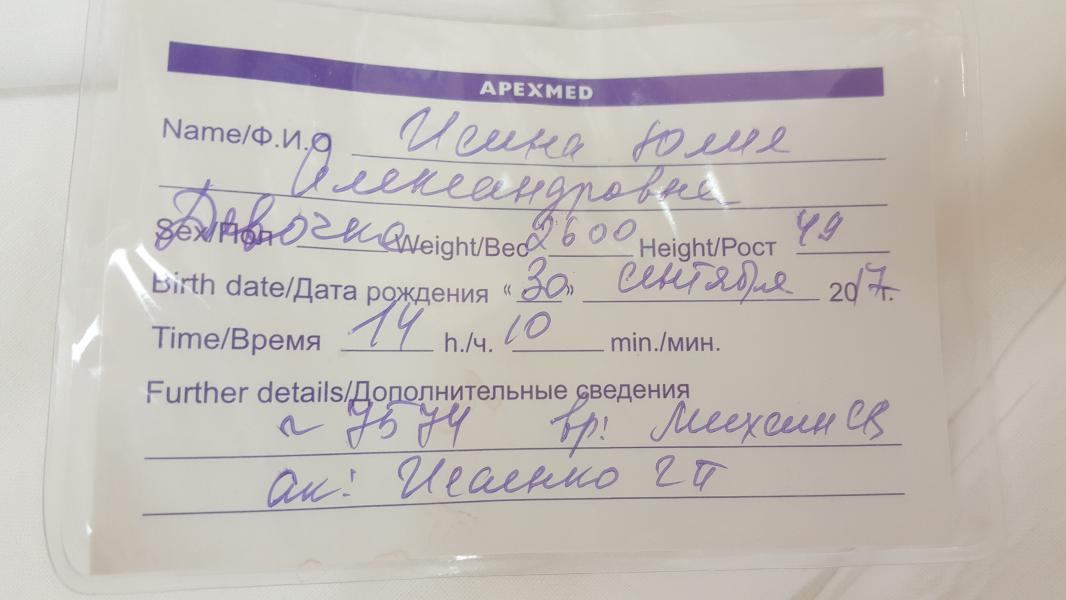 APEXMED
Name/Ф.И.О Исина Юлия
Александровна
Sex/Пол Девочка Weight/Вес 2600 Height/Рост 49
Birth date/Дата рождения «30» сентября 2017г.
Time/Время 14 h./ч. 10 min./мин.
Further details/Дополнительные сведения
7574 вр:
ак: